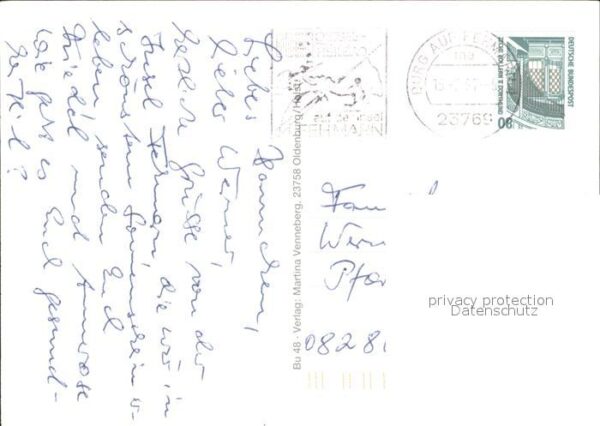 Liebes Hannchen,
lieber Werner,
herzliche Grüsse von der
Insel Fehmarn, die wir in
schönstem Sonnenschein er-
leben senden Euch
Friedel und
Wie geht es Euch gesund-
heitl.?
auf der Insel
FEHMARN
BURG AUF FEHMARN
23769
DEUTSCHE BUNDESPOST
80
Bu 48 · Verlag: Martina Venneberg, 23758 Oldenburg/Holst.
Fam
Wern
Pfor
0828
privacy protection
Datenschutz